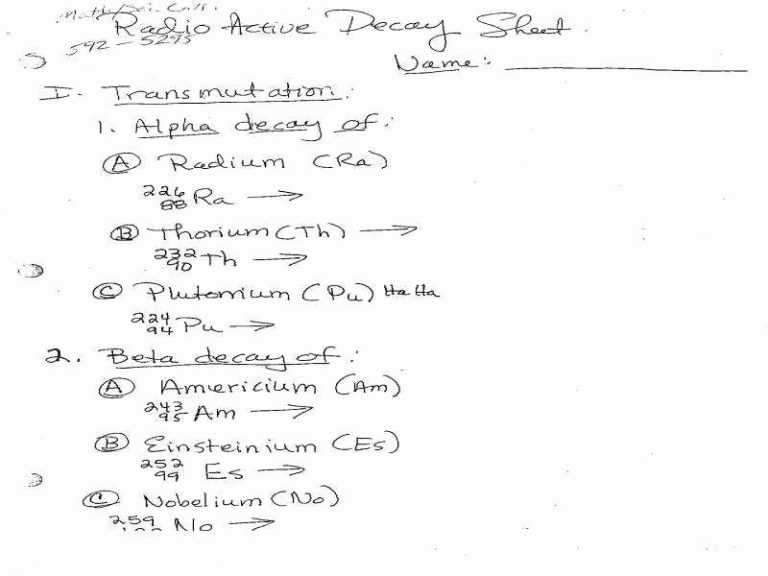 Radio Active Decay Sheet
542 - 5295
Name:
I. Transmutation:
1. Alpha decay of:
A Radium (Ra)
226 88 Ra →
B Thorium (Th) →
232 90 Th →
C Plutonium (Pu) Ha Ha
224 94 Pu →
2. Beta decay of:
A Americium (Am)
243 95 Am →
B Einsteinium (Es)
252 99 Es →
C Nobelium (No)
259 No →